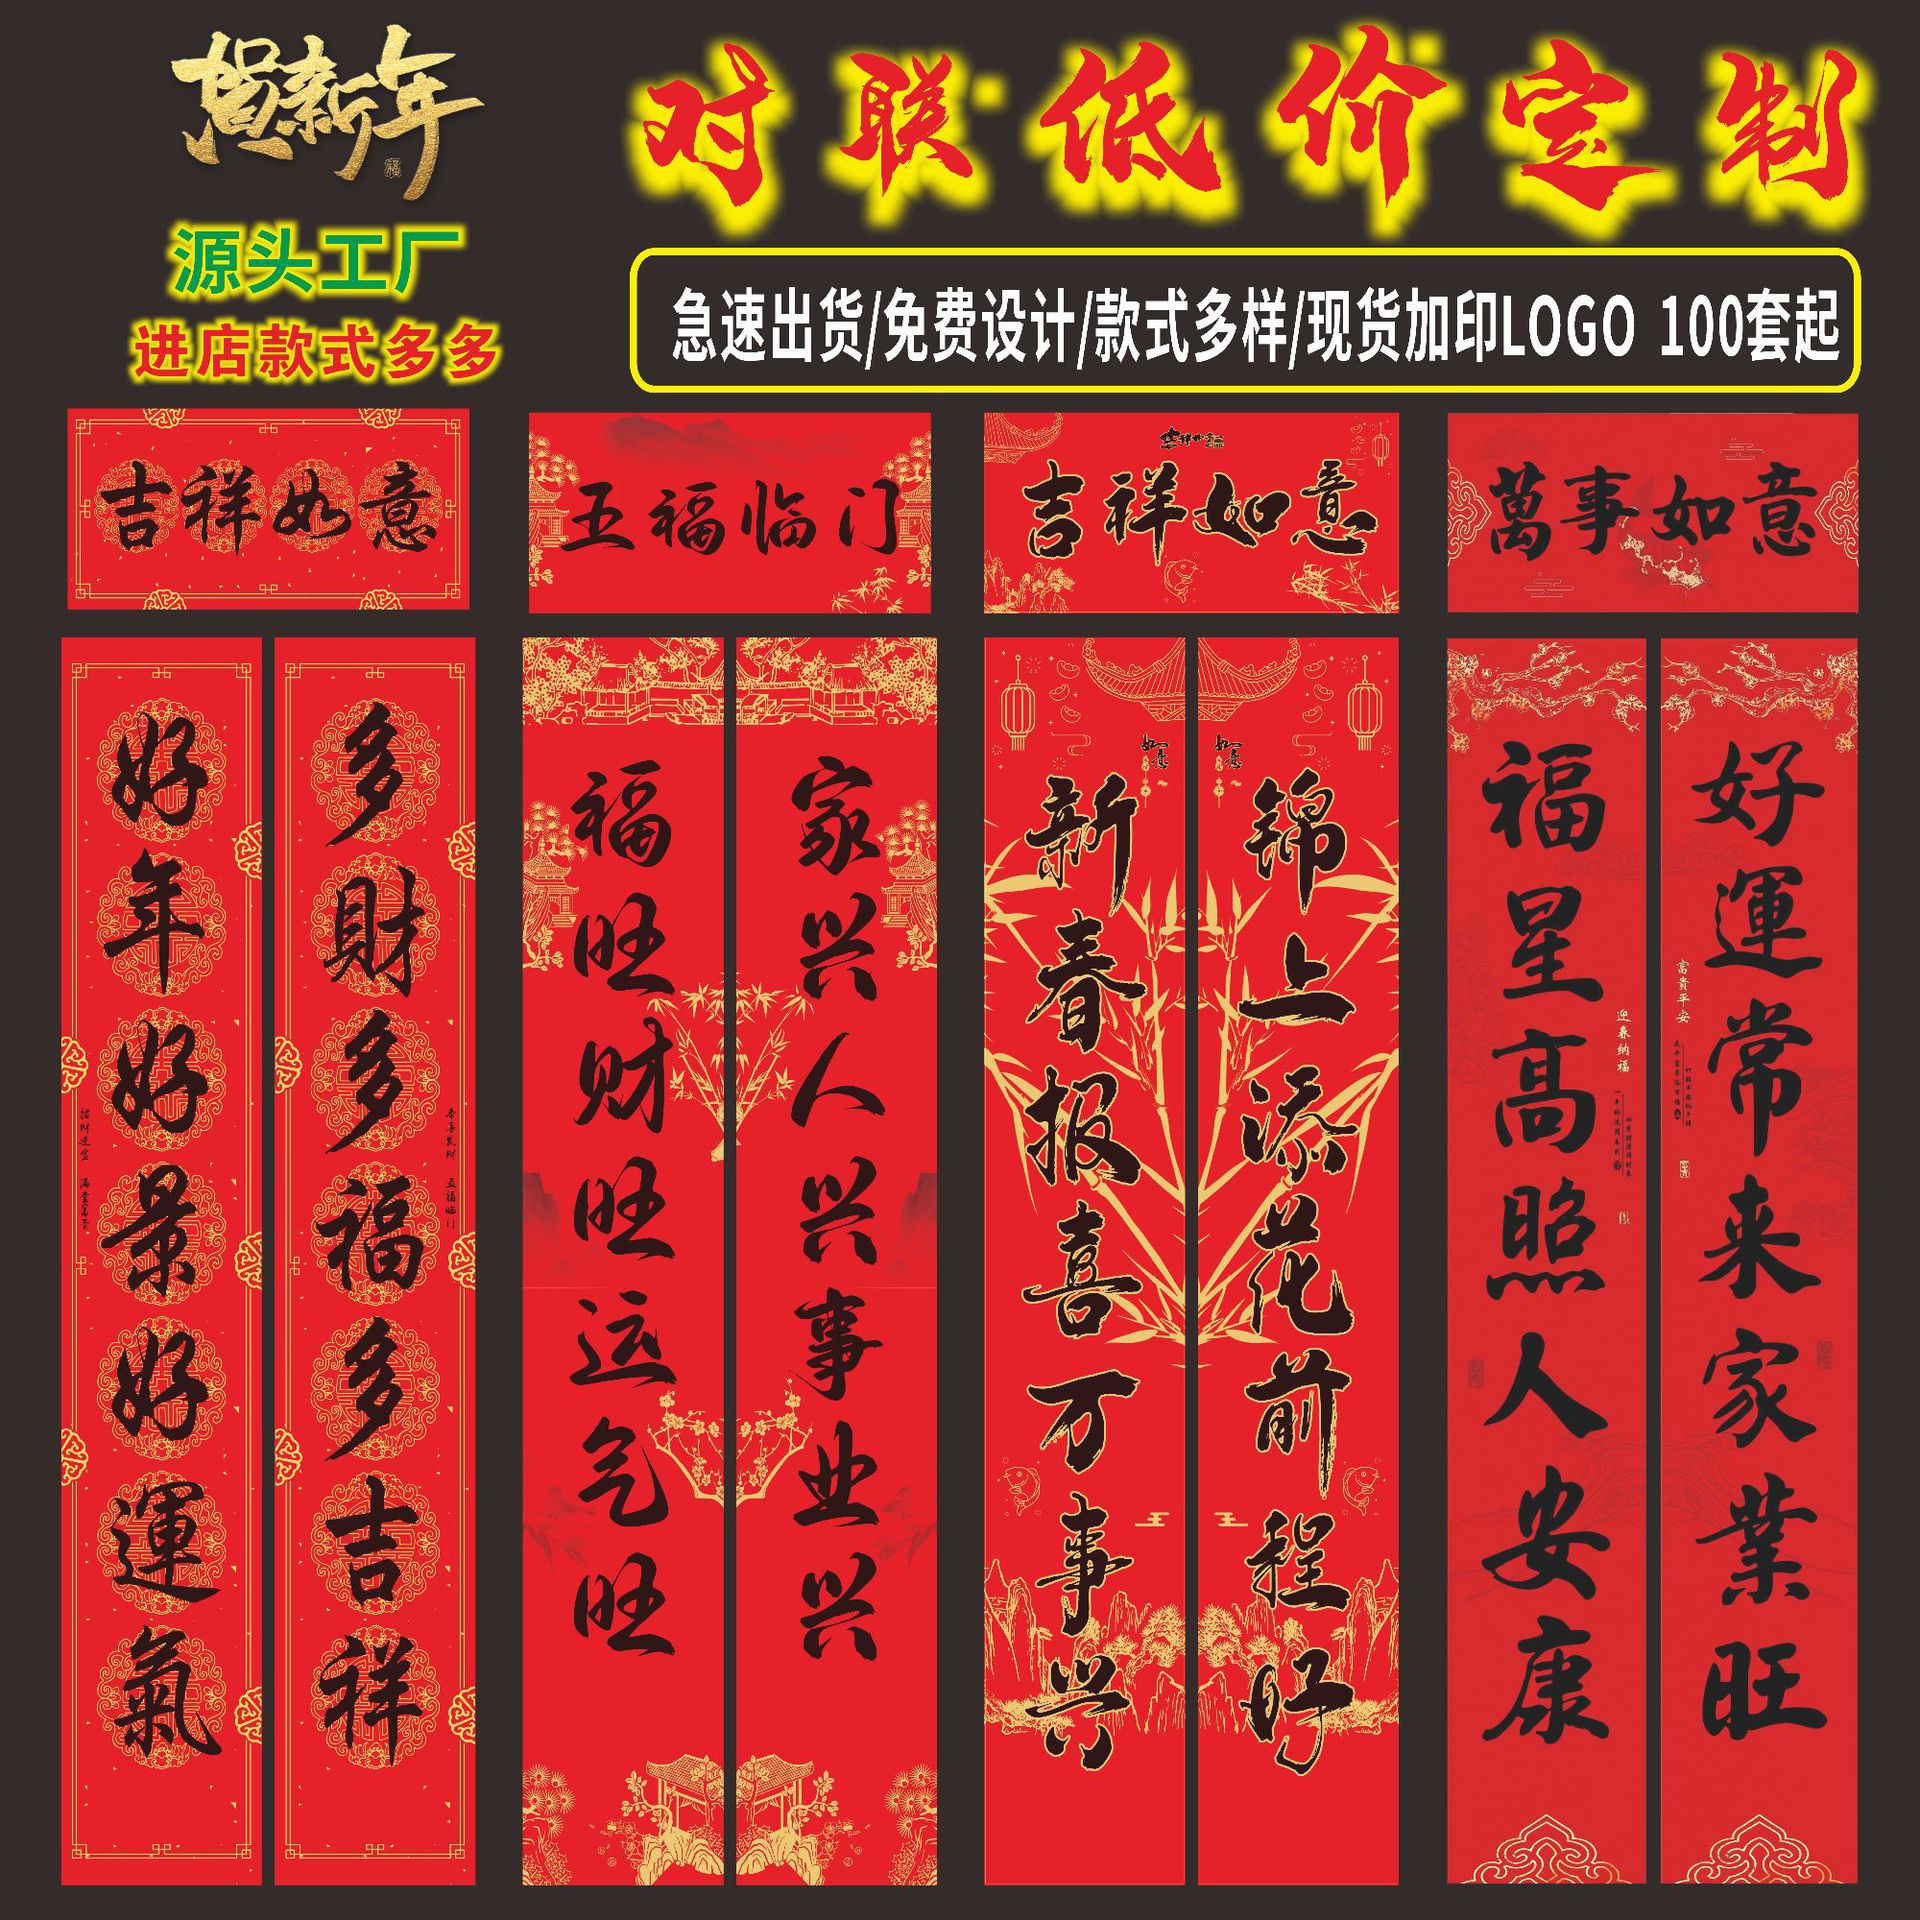 贺新年
对联低价定制
源头工厂
进店款式多多
急速出货/免费设计/款式多样/现货加印LOGO 100套起
吉祥如意
好年好景好運氣
多財多福多吉祥
五福临门
福旺财旺运气旺
家兴人兴事业兴
吉祥如意
吉祥如意
如意
如意
新春报喜万事兴
锦上添花前程好
萬事如意
福星高照人安康
迎春纳福
好運常来家業旺
富貴平安